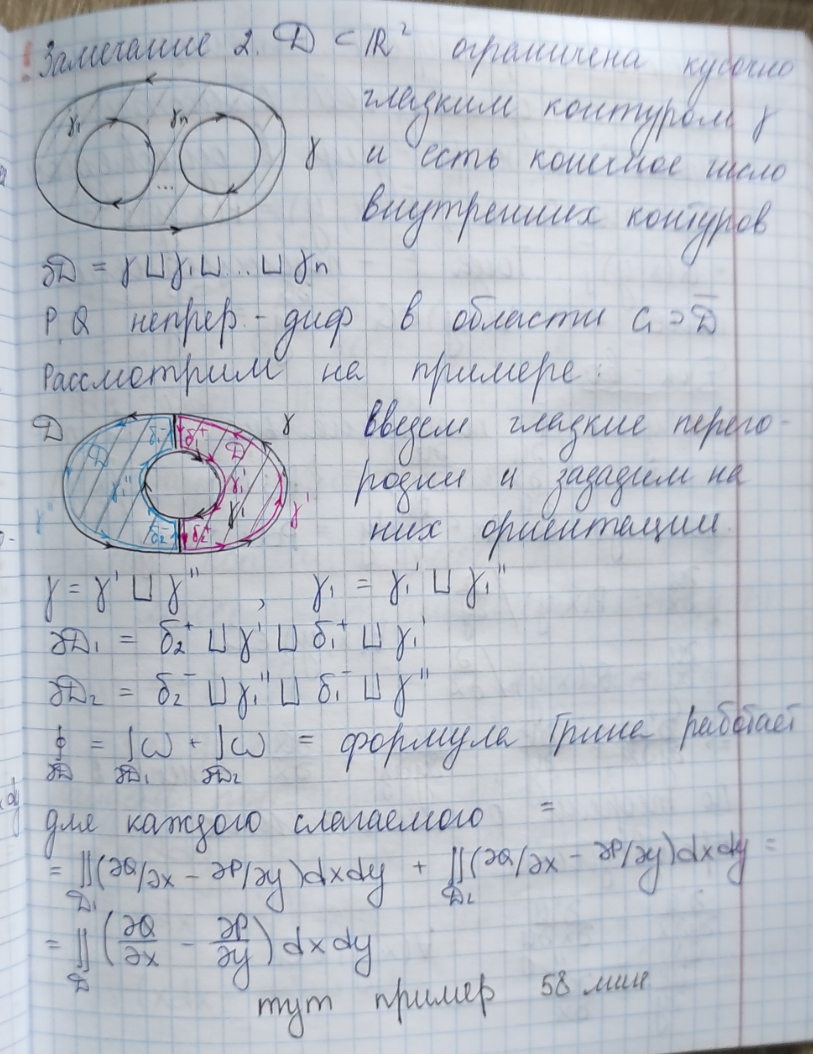 ! Замечание 2. D ⊂ ℝ² ограничена кусочно
гладким контуром γ
и есть конечное число
внутренних контуров
γ₁ γₙ ... γ
∂D = γ ⊔ γ₁ ⊔ ... ⊔ γₙ
P, Q непрер-диф в области G ⊃ D̅
Рассмотрим на примере:
D γ δ₁⁻ δ₁⁺ D D γ₁'' γ₁' γ₁ γ'' γ' δ₂⁻ δ₂⁺
Введем гладкие перего-
родки и зададим на
них ориентации
γ = γ' ⊔ γ'' , γ₁ = γ₁' ⊔ γ₁''
∂D₁ = δ₂⁺ ⊔ γ' ⊔ δ₁⁺ ⊔ γ₁'
∂D₂ = δ₂⁻ ⊔ γ₁'' ⊔ δ₁⁻ ⊔ γ''
∮_∂D = ∫_∂D₁ ω + ∫_∂D₂ ω = формула Грина работает
для каждого слагаемого =
= ∬_D₁ (∂Q/∂x - ∂P/∂y)dxdy + ∬_D₂ (∂Q/∂x - ∂P/∂y)dxdy =
= ∬_D (∂Q/∂x - ∂P/∂y) dxdy
тут пример 58 мин